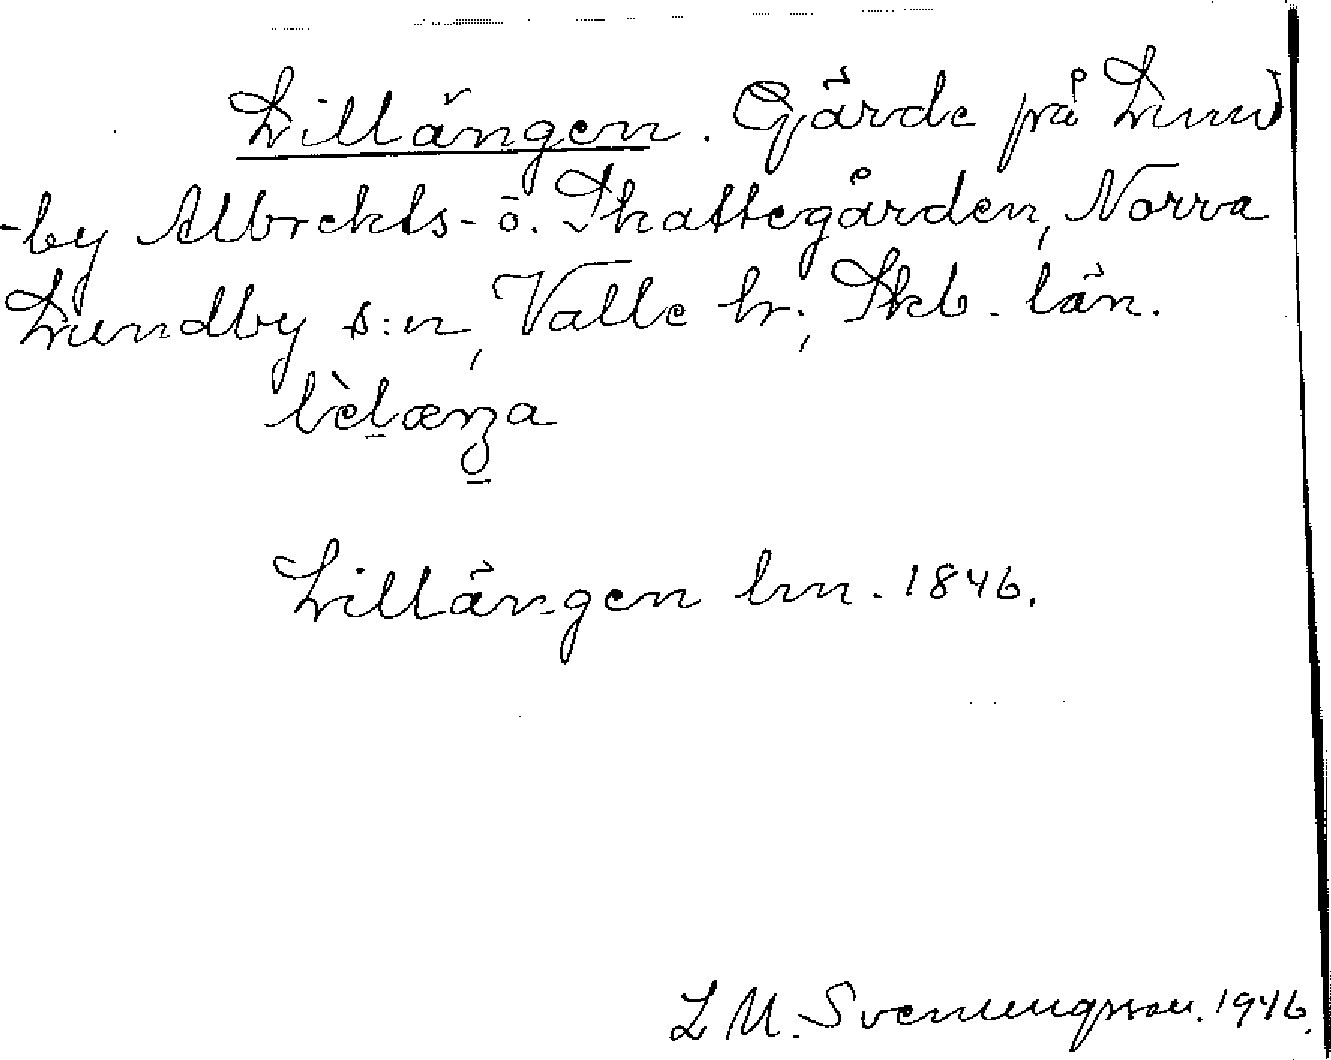 Lillängen. Gärde på Lund
-by Albrekts- o. Skattegården, Norra
Lundby s:n, Valle hr., Skb. län.
lèlæŋa
Lillängen lm. 1846.
L M. Svenungsson. 1946.